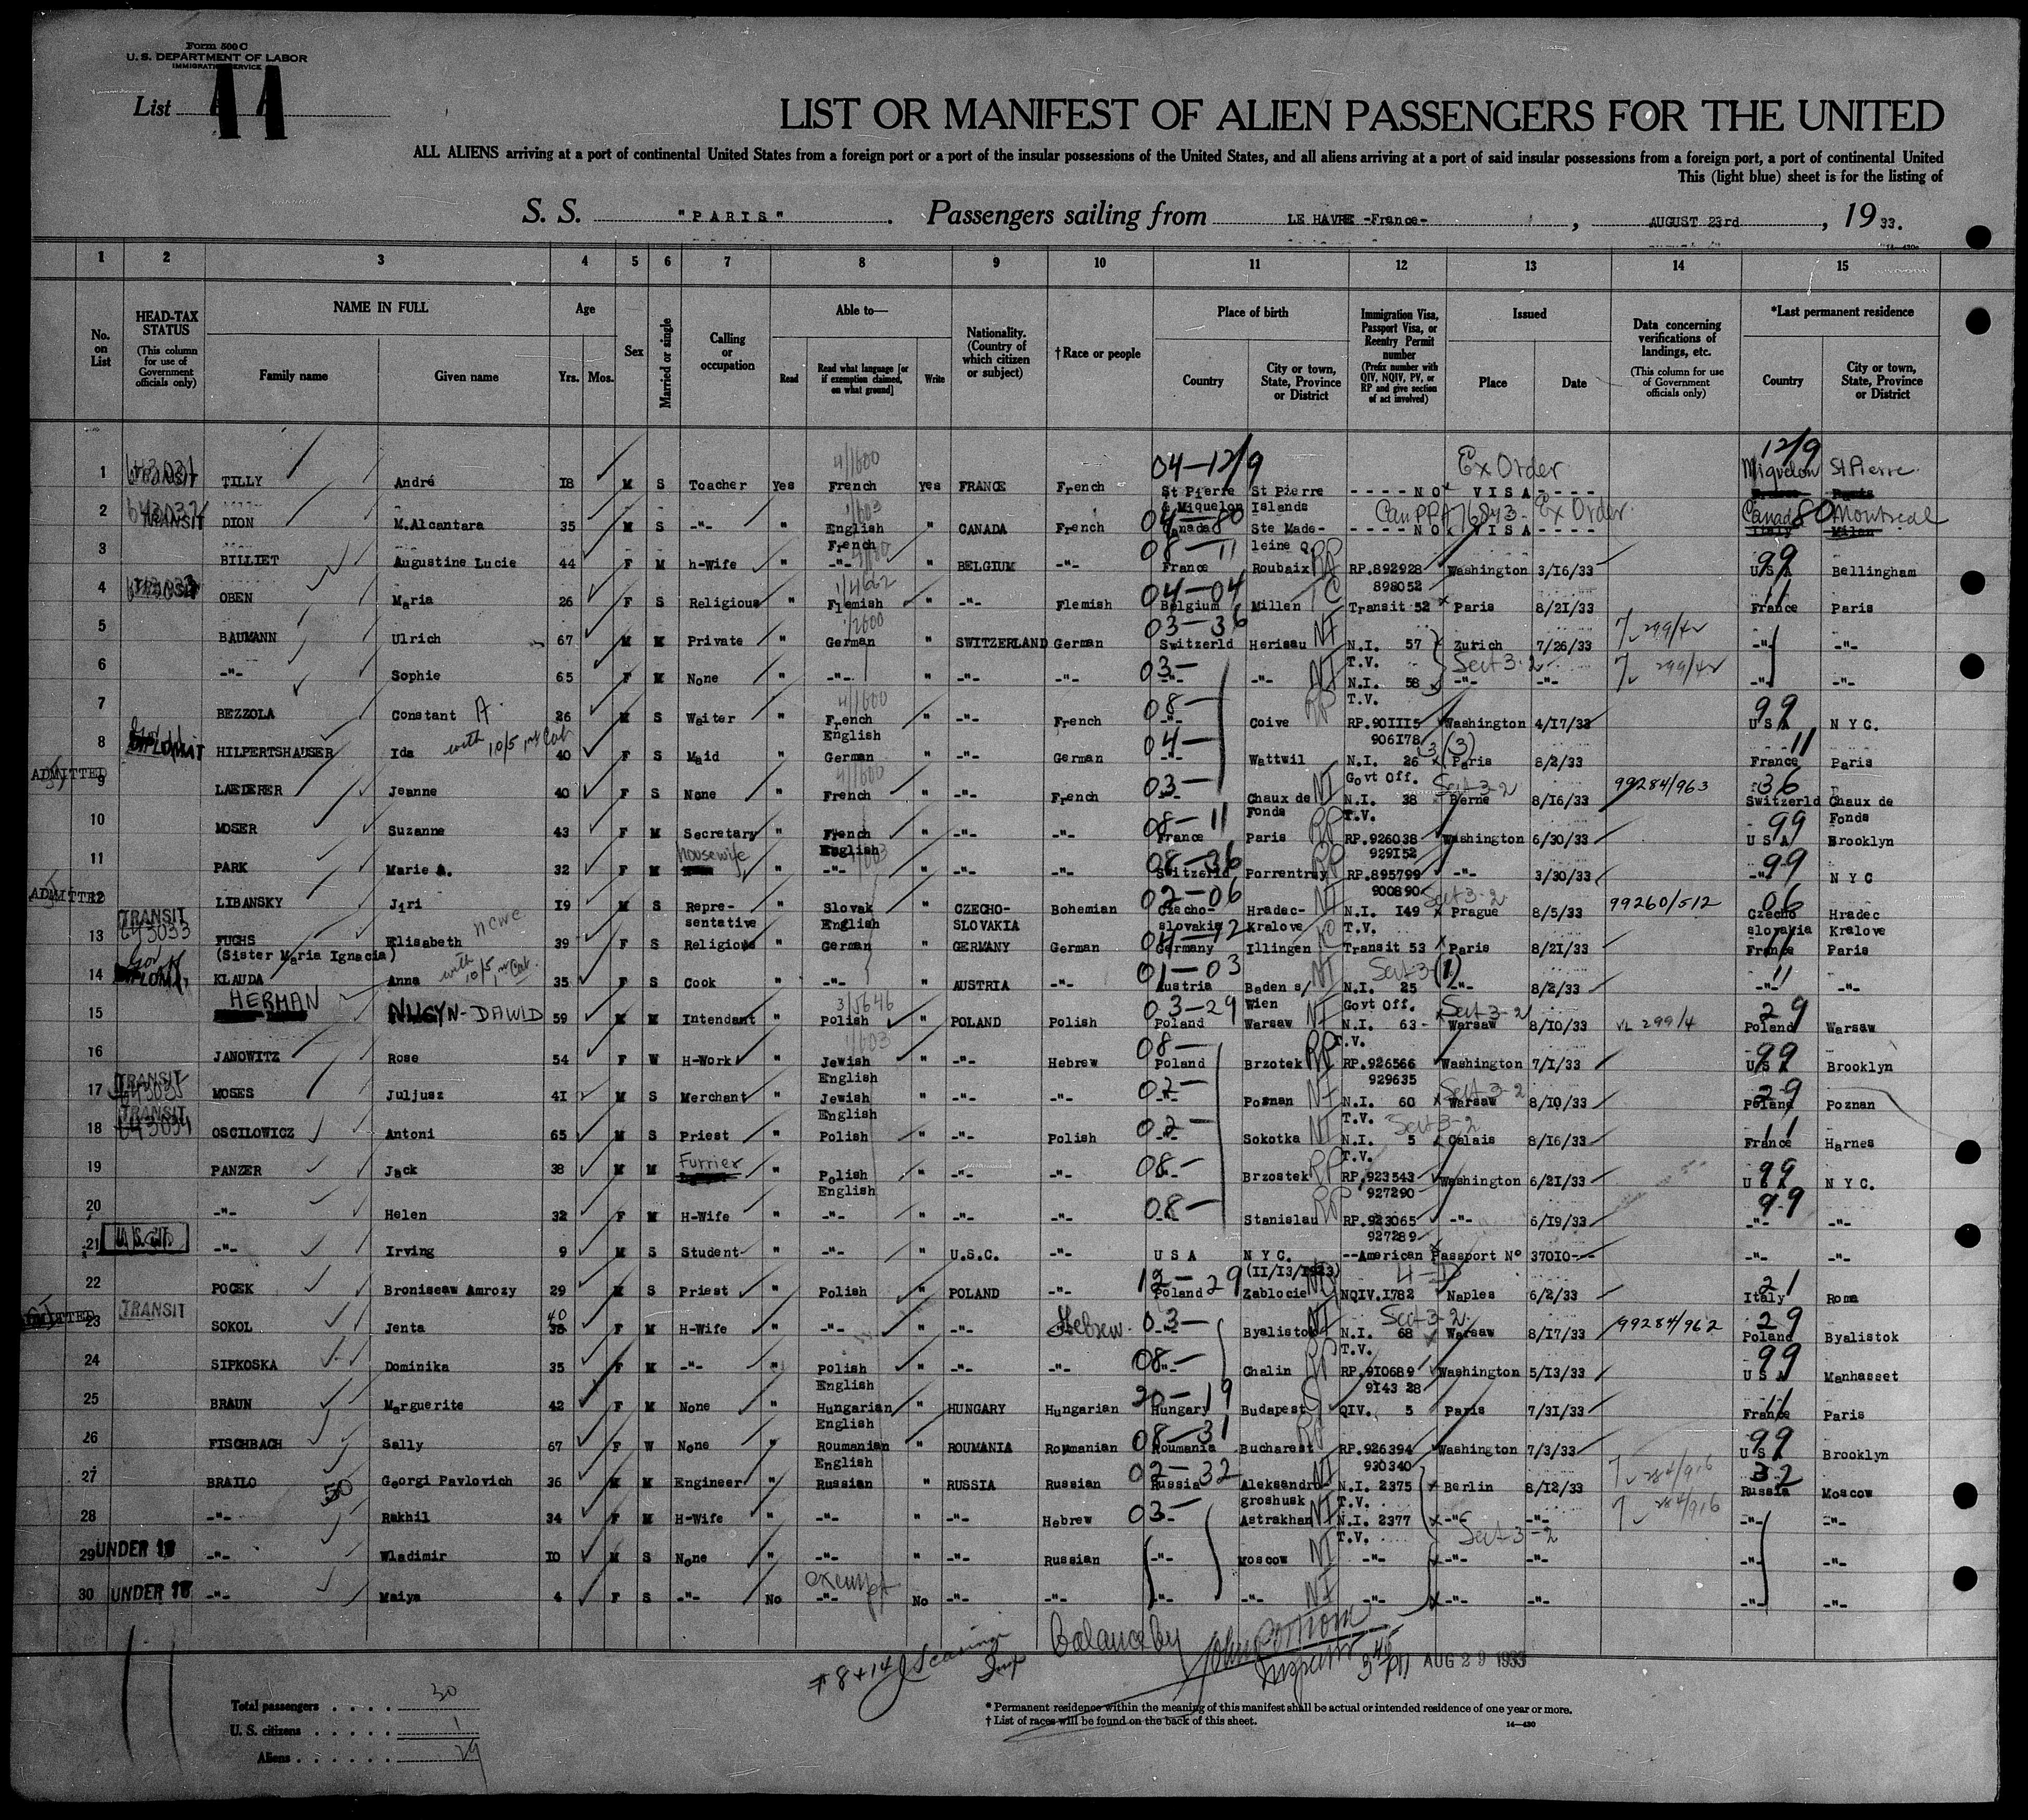 Form 500 C
U. S. DEPARTMENT OF LABOR
IMMIGRATION SERVICE
List 11
LIST OR MANIFEST OF ALIEN PASSENGERS FOR THE UNITED
ALL ALIENS arriving at a port of continental United States from a foreign port or a port of the insular possessions of the United States, and all aliens arriving at a port of said insular possessions from a foreign port, a port of continental United
This (light blue) sheet is for the listing of
S. S. "PARIS". Passengers sailing from LE HAVRE -France- , AUGUST 23rd , 19 33.
1 2 3 4 5 6 7 8 9 10 11 12 13 14 15
No. on List
HEAD-TAX STATUS (This column for use of Government officials only)
NAME IN FULL Family name Given name
Age Yrs. Mos.
Sex
Married or single
Calling or occupation
Able to— Read Read what language [or if exemption claimed, on what ground] Write
Nationality. (Country of which citizen or subject)
†Race or people
Place of birth Country City or town, State, Province or District
Immigration Visa, Passport Visa, or Reentry Permit number (Prefix number with QIV, NQIV, PV, or RP and give section of act involved)
Issued Place Date
Data concerning verifications of landings, etc. (This column for use of Government officials only)
*Last permanent residence Country City or town, State, Province or District
04-12/9 Ex Order 12/9
1 TILLY André 18 M S Teacher Yes French yes FRANCE French St Pierre & Miquelon St Pierre Islands ----NO VISA---- Miquelon St Pierre
2 TRANSIT DION M.Alcantara 35 M S -"- " English French " CANADA French 04-80 Canada Ste Made-leine Q. Can PP 76843- Ex Order ----NO VISA---- Canada 80 Montreal
3 BILLIET Augustine Lucie 44 F M h-Wife " -"- " BELGIUM -"- 08-11 France Roubaix RP RP.892928 898052 Washington 3/16/33 99 U S A Bellingham
4 OBEN Maria 26 F S Religious " Flemish " -"- Flemish 04-04 Belgium Millen TC Transit 52 Paris 8/21/33 11 France Paris
5 BAUMANN Ulrich 67 M M Private " German " SWITZERLAND German 03-36 Switzerld Herisau NI N.I. 57 T.V. Zurich 7/26/33 299/4 -"- -"-
6 -"- Sophie 65 F M None " -"- " -"- -"- 03- -"- -"- NI N.I. 58 T.V. Sect 3-2 -"- -"- 299/4 -"- -"-
7 BEZZOLA Constant A. 26 M S Waiter " French English " -"- French 08- -"- Coive RP RP.901115 906178 Washington 4/17/33 99 U S A N Y C.
8 HILPERTSHAUSER Ida with 10/5 40 F S Maid " German " -"- German 04- -"- Wattwil N.I. 26 Govt Off. 3(3) Paris 8/2/33 11 France Paris
ADMITTED
9 LAEDERER Jeanne 40 F S None " French " -"- French 03- -"- Chaux de Fonds NI N.I. 38 T.V. Sect 3-2 Berne 8/16/33 99284/963 36 Switzerld Chaux de Fonds
10 MOSER Suzanne 43 F M Secretary " French English " -"- -"- 08-11 France Paris RP RP.926038 929152 Washington 6/30/33 99 U S A Brooklyn
11 PARK Marie A. 32 F M Housewife " -"- " -"- -"- 08-36 Switzerld Porrentruy RP RP.895799 900890 -"- 3/30/33 99 -"- N Y C
ADMITTED
12 LIBANSKY Jiri 19 M S Repre-sentative " Slovak English " CZECHO-SLOVAKIA Bohemian 02-06 Czecho-slovakia Hradec-Kralove NI N.I. 149 Sect 3-2 Prague 8/5/33 99260/512 06 Czecho slovakia Hradec Kralove
13 TRANSIT 643033 FUCHS (Sister Maria Ignacia) Elisabeth NCWC 39 F S Religious " German " GERMANY German 04-12 Germany Illingen TC Transit 53 Paris 8/21/33 11 France Paris
14 KLAUDA Anna with 10/5 35 F S Cook " -"- " AUSTRIA -"- 01-03 Austria Baden s/ Wien NI N.I. 25 Govt Off. Sect 3(1) -"- 8/2/33 11 -"- -"-
15 HERMAN NUSYN-DAWID 59 M M Intendant " Polish " POLAND Polish 03-29 Poland Warsaw NI N.I. 63 T.V. Sect 3-2 Warsaw 8/10/33 VL 299/4 29 Poland Warsaw
16 JANOWITZ Rose 54 F W H-Work " Jewish English " -"- Hebrew 08- Poland Brzotek RP RP.926566 929635 Washington 7/1/33 99 U S A Brooklyn
17 TRANSIT 643035 MOSES Juljusz 41 M S Merchant " Jewish English " -"- -"- 02- -"- Poznan NI N.I. 60 T.V. Sect 3-2 Warsaw 8/10/33 29 Poland Poznan
18 TRANSIT 643034 OSCILOWICZ Antoni 65 M S Priest " Polish " -"- Polish 02- -"- Sokotka NI N.I. 5 T.V. Sect 3-2 Calais 8/16/33 11 France Harnes
19 PANZER Jack 38 M M Furrier " Polish English " -"- -"- 08- -"- Brzostek RP RP.923543 927290 Washington 6/21/33 99 U S A N Y C.
20 -"- Helen 32 F M H-Wife " -"- " -"- -"- 08- -"- Stanislau RP RP.923065 927289 -"- 6/19/33 99 -"- -"-
21 U.S. Cit. -"- Irving 9 M S Student " -"- " U.S.C. -"- U S A N Y C. (11/13/1923) --American Passport Nº 37010--- -"- -"-
22 POCEK Broniseaw Amrozy 29 M S Priest " Polish " POLAND -"- 12-29 Poland Zablocie NQIV.1782 4-D Naples 6/2/33 21 Italy Roma
ADMITTED
23 TRANSIT SOKOL Jenta 40 38 F M H-Wife " -"- " -"- Hebrew 03- -"- Byalistok NI N.I. 68 T.V. Sect 3-2 Warsaw 8/17/33 99284/962 29 Poland Byalistok
24 SIPKOSKA Dominika 35 F M -"- " Polish English " -"- -"- 08- -"- Chalin RP RP.910689 9143 28 Washington 5/13/33 99 U S A Manhasset
25 BRAUN Marguerite 42 F M None " Hungarian English " HUNGARY Hungarian 20-19 Hungary Budapest QIV. 5 Paris 7/31/33 11 France Paris
26 FISCHBACH Sally 67 F W None " Roumanian English " ROUMANIA Roumanian 08-31 Roumania Bucharest RP RP.926394 930340 Washington 7/3/33 99 U S A Brooklyn
27 BRAILO Georgi Pavlovich 36 M M Engineer " Russian " RUSSIA Russian 02-32 Russia Aleksandro-groshusk NI N.I. 2375 T.V. Berlin 8/12/33 284/916 32 Russia Moscow
50
28 -"- Rakhil 34 F M H-Wife " -"- " -"- Hebrew 03- Astrakhan NI N.I. 2377 T.V. -"- -"- 284/916 -"- -"-
Sect 3-2
29 UNDER 16 -"- Wladimir 10 M S None " -"- " -"- Russian -"- Moscow NI -"- -"- -"- -"- -"-
30 UNDER 16 -"- Maiya 4 F S -"- No exempt -"- No -"- -"- -"- -"- NI -"- -"- -"- -"- -"-
#8+14 Insp Balance by Inspector 3 45 PM AUG 29 1933
Total passengers . . . . 30
U. S. citizens . . . . . 1
Aliens . . . . . . 29
* Permanent residence within the meaning of this manifest shall be actual or intended residence of one year or more.
† List of races will be found on the back of this sheet.
14—430